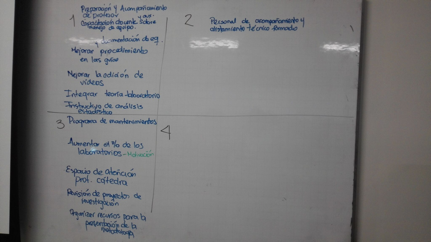 1
Preparación y Acompañamiento
de profesor
Capacitación docente sobre
manejo de equipo
Mejorar procedimiento
en las guías
Mejorar la edición de
videos
Integrar teoría-laboratorio
Instructivo de análisis
estadístico
2
Personal de acompañamiento y
técnico formado
3 Programa de mantenimientos
Aumentar el % de los
laboratorios
Espacio de atención
prof. catedra
Revisión de proyectos de
investigación
Organizar recursos para la
4